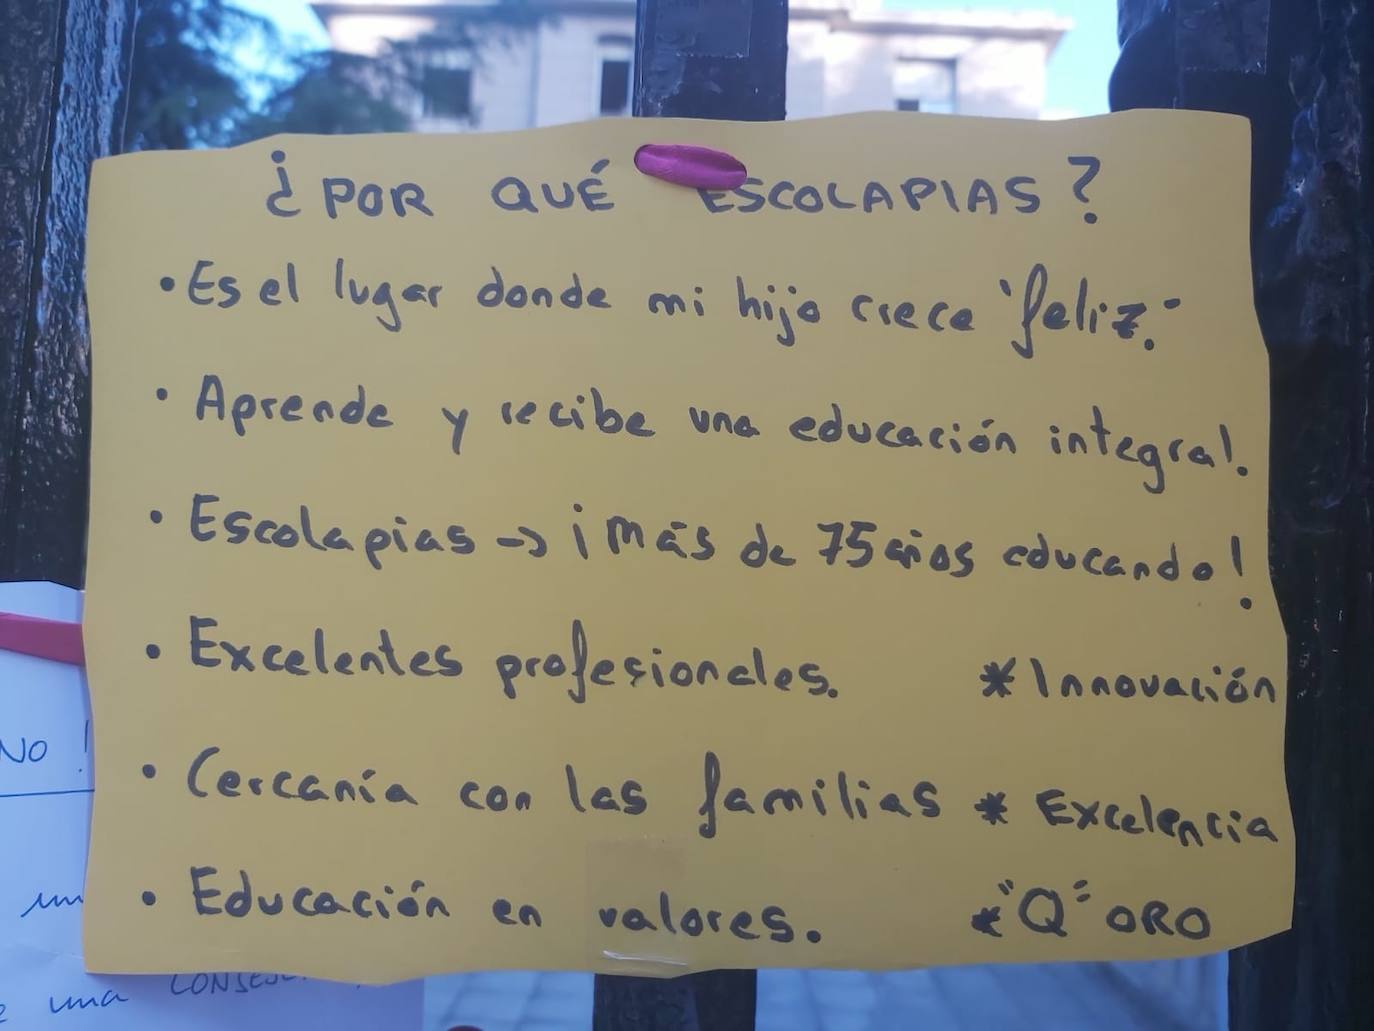 ¿POR QUÉ ESCOLAPIAS?
• Es el lugar donde mi hijo crece "feliz."
• Aprende y recibe una educación integral.
• Escolapias → ¡Más de 75 años educando!
• Excelentes profesionales. * Innovación
• Cercanía con las familias * Excelencia
• Educación en valores. * "Q" ORO
NO!
una